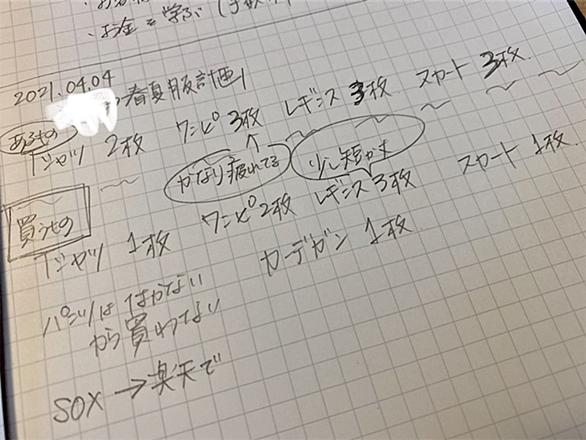 ・お金を学ぶ(
2021.04.04
春夏服計画
あるもの
Tシャツ 2枚 ワンピ 3枚 レギンス 3枚 スカート 3枚
かなり疲れてる
少し短かめ
買うもの
Tシャツ 1枚 ワンピ 2枚 レギンス 3枚 スカート 1枚
カーデガン 1枚
パンツは はかない
から買わない
SOX → 楽天で